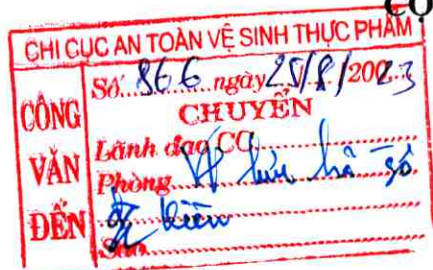 CỘ
CHI CỤC AN TOÀN VỆ SINH THỰC PHẨM
CÔNG VĂN ĐẾN
Số: 866 ngày 25/8/20023
CHUYỂN
Lãnh đạo CC
Phòng VP lưu hồ sơ